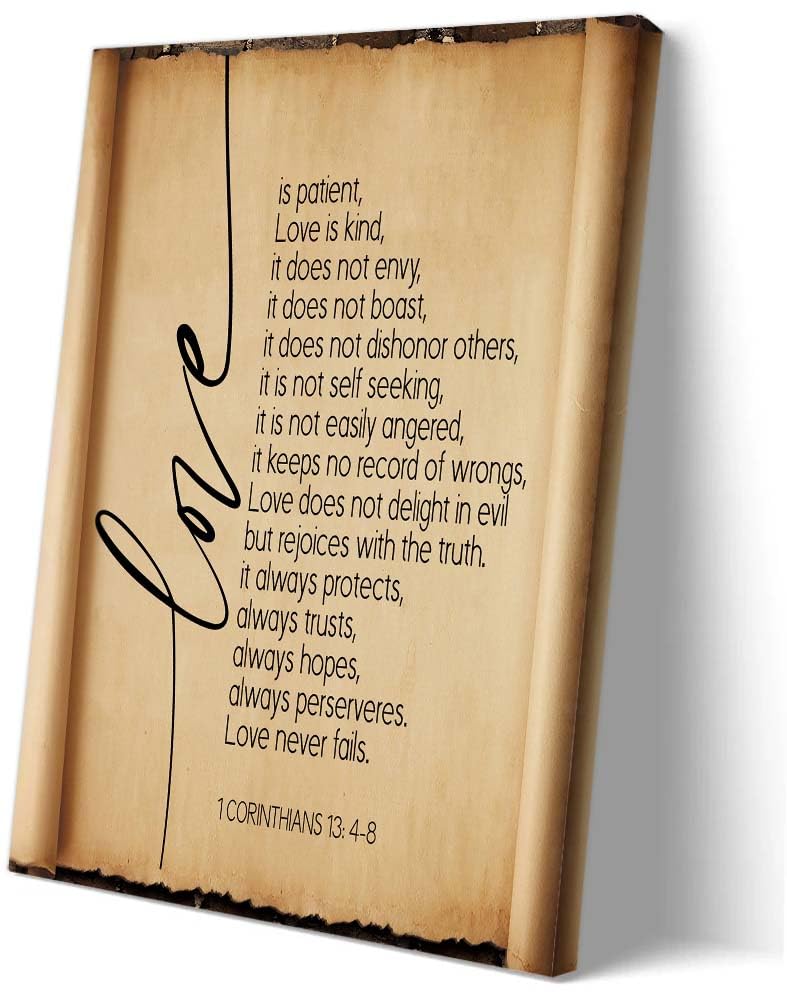 love
is patient,
Love is kind,
it does not envy,
it does not boast,
it does not dishonor others,
it is not self seeking,
it is not easily angered,
it keeps no record of wrongs,
Love does not delight in evil
but rejoices with the truth.
it always protects,
always trusts,
always hopes,
always perserveres.
Love never fails.
1 CORINTHIANS 13: 4-8